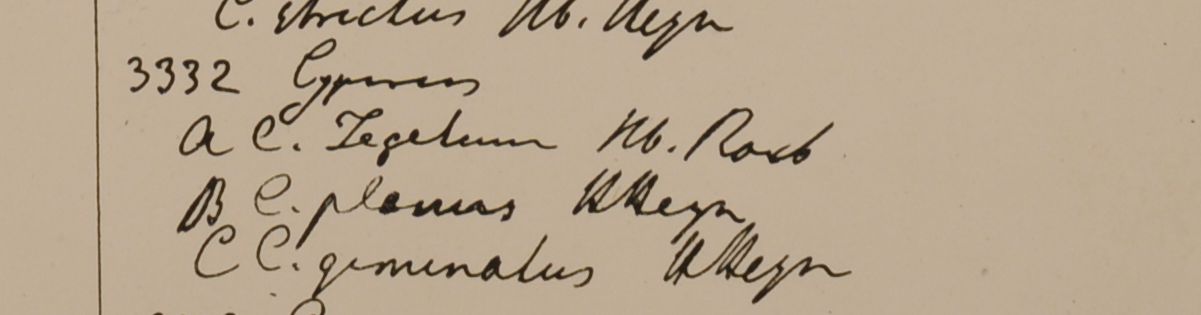 C. strictus Hb. Heyn
3332 Cyperus
A C. Tegetum Hb. Roxb
B C. planus H Heyn
C C. geminatus H Heyn